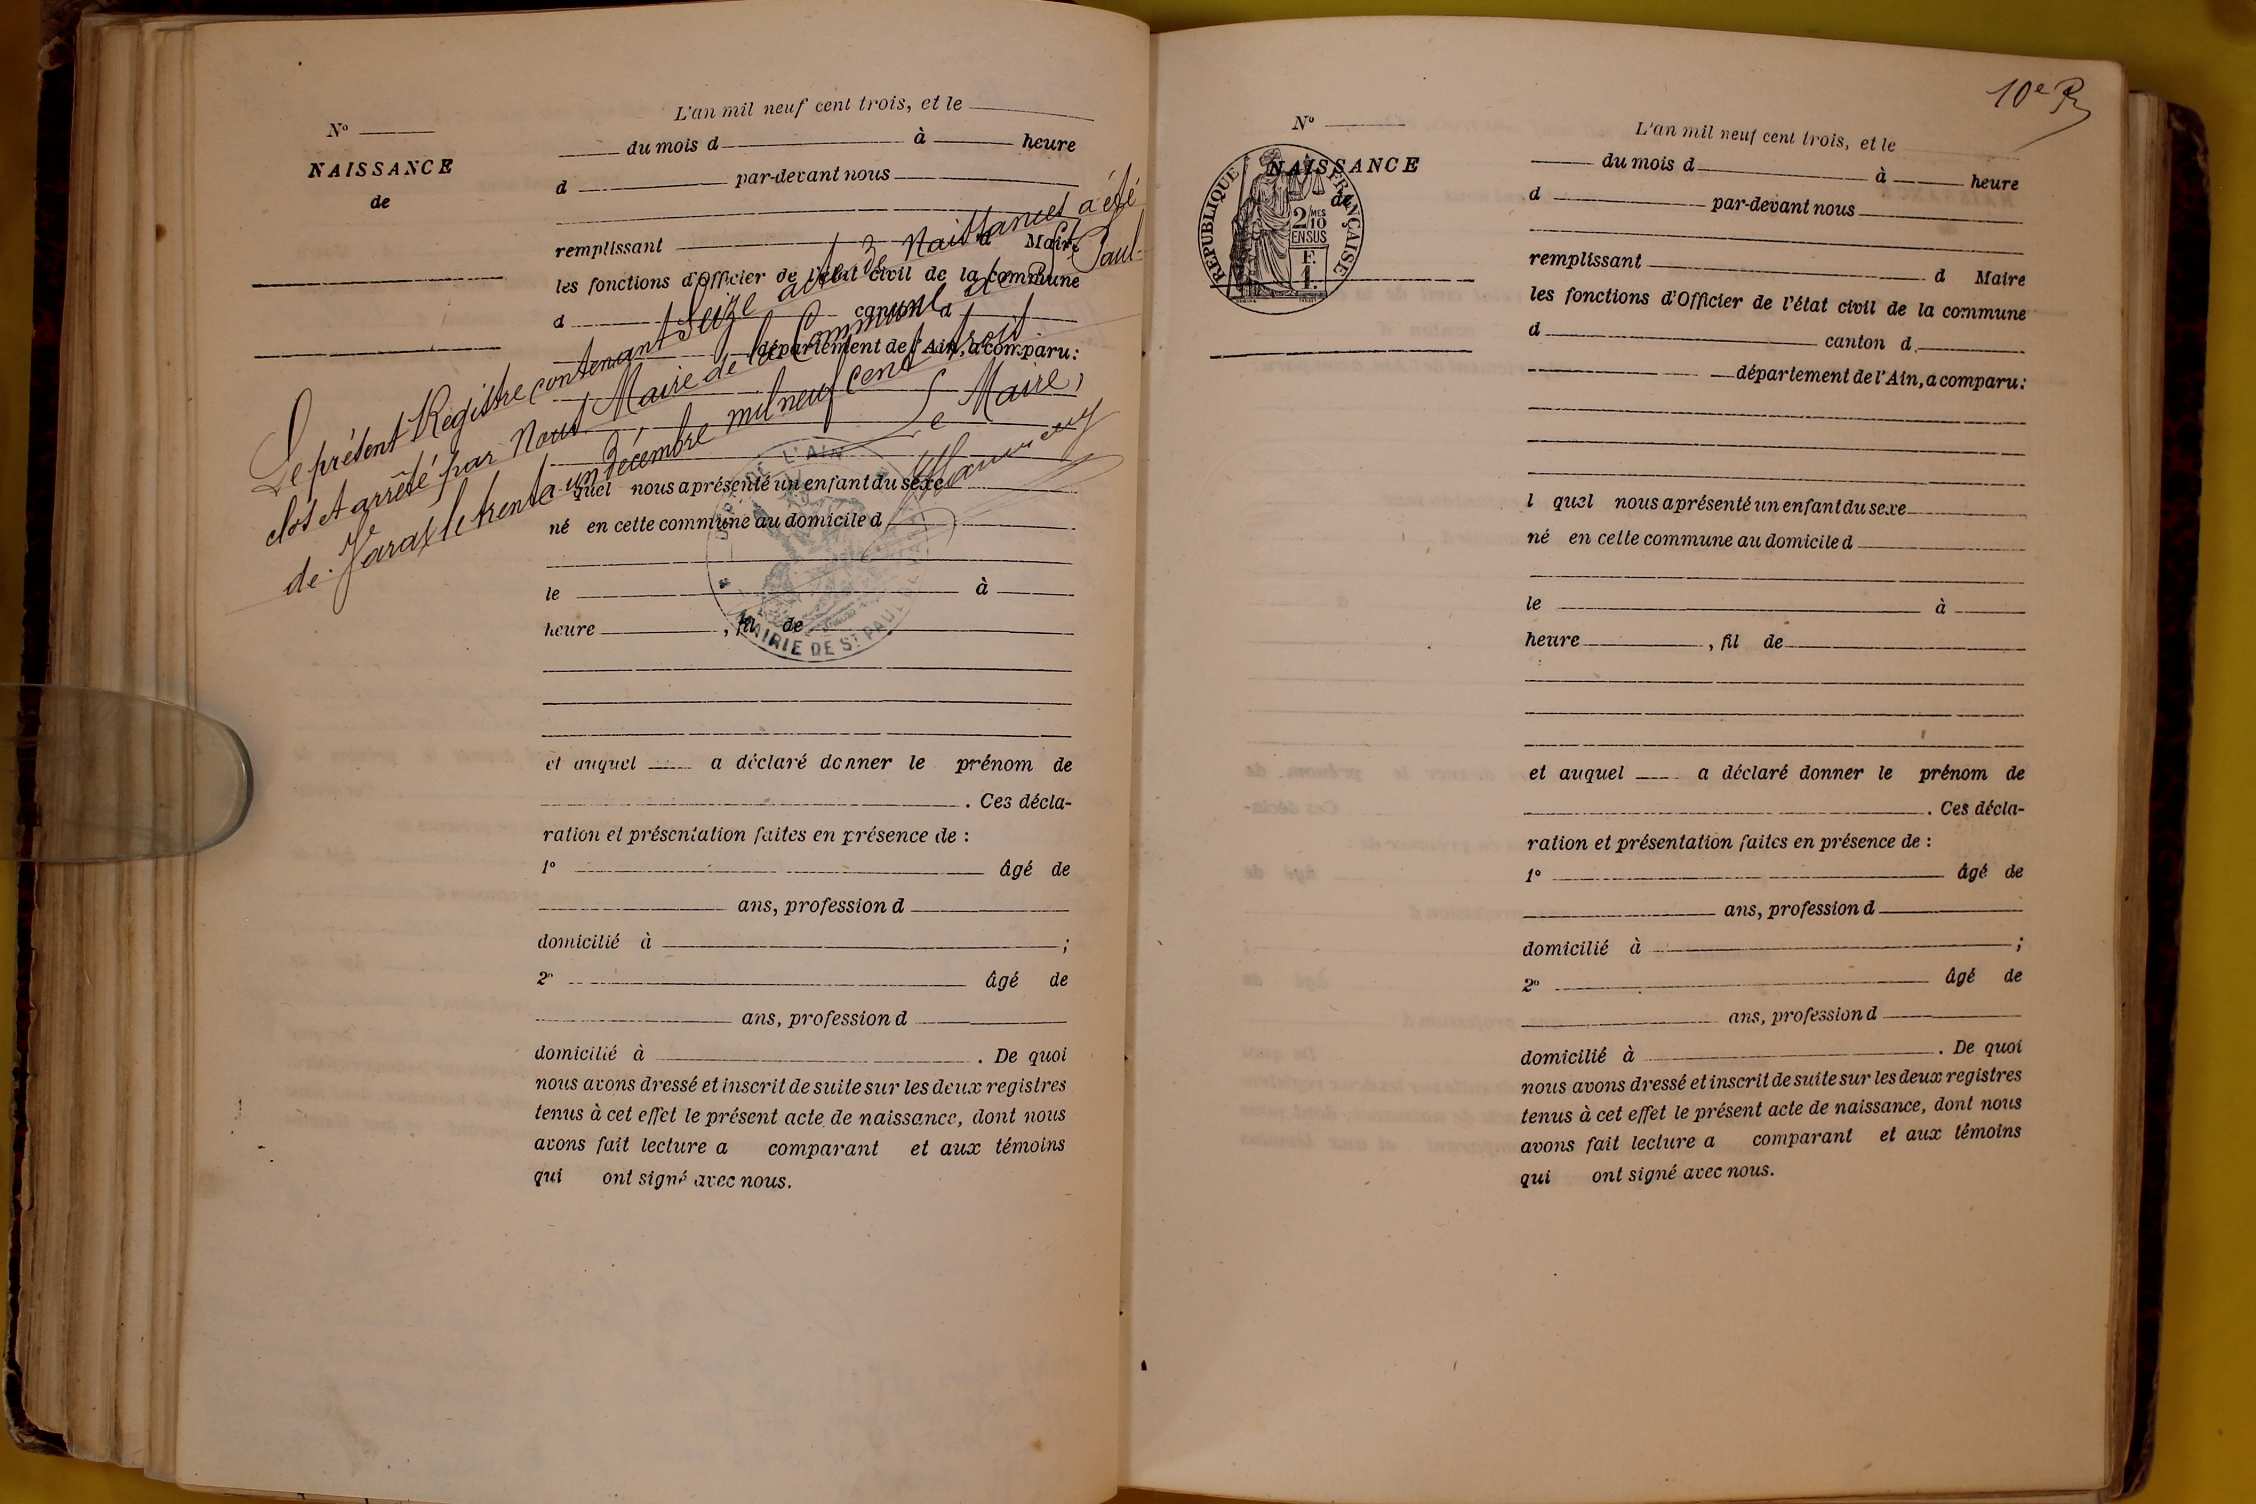 N° 
NAISSANCE
de
L'an mil neuf cent trois, et le
du mois d à heure
d par-devant nous
remplissant d Maire
les fonctions d'Officier de l'état civil de la commune
d canton d
département de l'Ain, a comparu:
l quel nous a présenté un enfant du sexe
né en cette commune au domicile d
le à
heure , fil de
et auquel a déclaré donner le prénom de
. Ces décla-
ration et présentation faites en présence de :
1° âgé de
ans, profession d
domicilié à ;
2° âgé de
ans, profession d
domicilié à . De quoi
nous avons dressé et inscrit de suite sur les deux registres
tenus à cet effet le présent acte de naissance, dont nous
avons fait lecture a comparant et aux témoins
qui ont signé avec nous.
Le présent Registre contenant Seize actes de Naissances a été
clos et arrêté par Nous Maire de la Commune de St Paul-
de-Varax le trente un décembre mil neuf cent trois
Le Maire,
DE L'AIN
MAIRIE DE ST PAUL DE
10e
N°
NAISSANCE
de
RÉPUBLIQUE FRANÇAISE
2/10 MES
EN SUS
F.
1.
L'an mil neuf cent trois, et le
du mois d à heure
d par-devant nous
remplissant d Maire
les fonctions d'Officier de l'état civil de la commune
d canton d
département de l'Ain, a comparu:
l quel nous a présenté un enfant du sexe
né en cette commune au domicile d
le à
heure , fil de
et auquel a déclaré donner le prénom de
. Ces décla-
ration et présentation faites en présence de :
1° âgé de
ans, profession d
domicilié à ;
2° âgé de
ans, profession d
domicilié à . De quoi
nous avons dressé et inscrit de suite sur les deux registres
tenus à cet effet le présent acte de naissance, dont nous
avons fait lecture a comparant et aux témoins
qui ont signé avec nous.